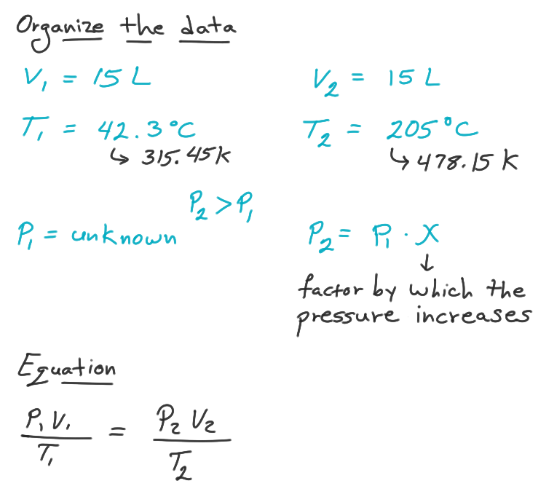 Organize the data
V₁ = 15 L
V₂ = 15 L
T₁ = 42.3°C
T₂ = 205°C
↳ 315.45K
↳ 478.15 K
P₂ > P₁
P₁ = unknown
P₂ = P₁ · X
↓
factor by which the
pressure increases
Equation
P₁ V₁ / T₁ = P₂ V₂ / T₂